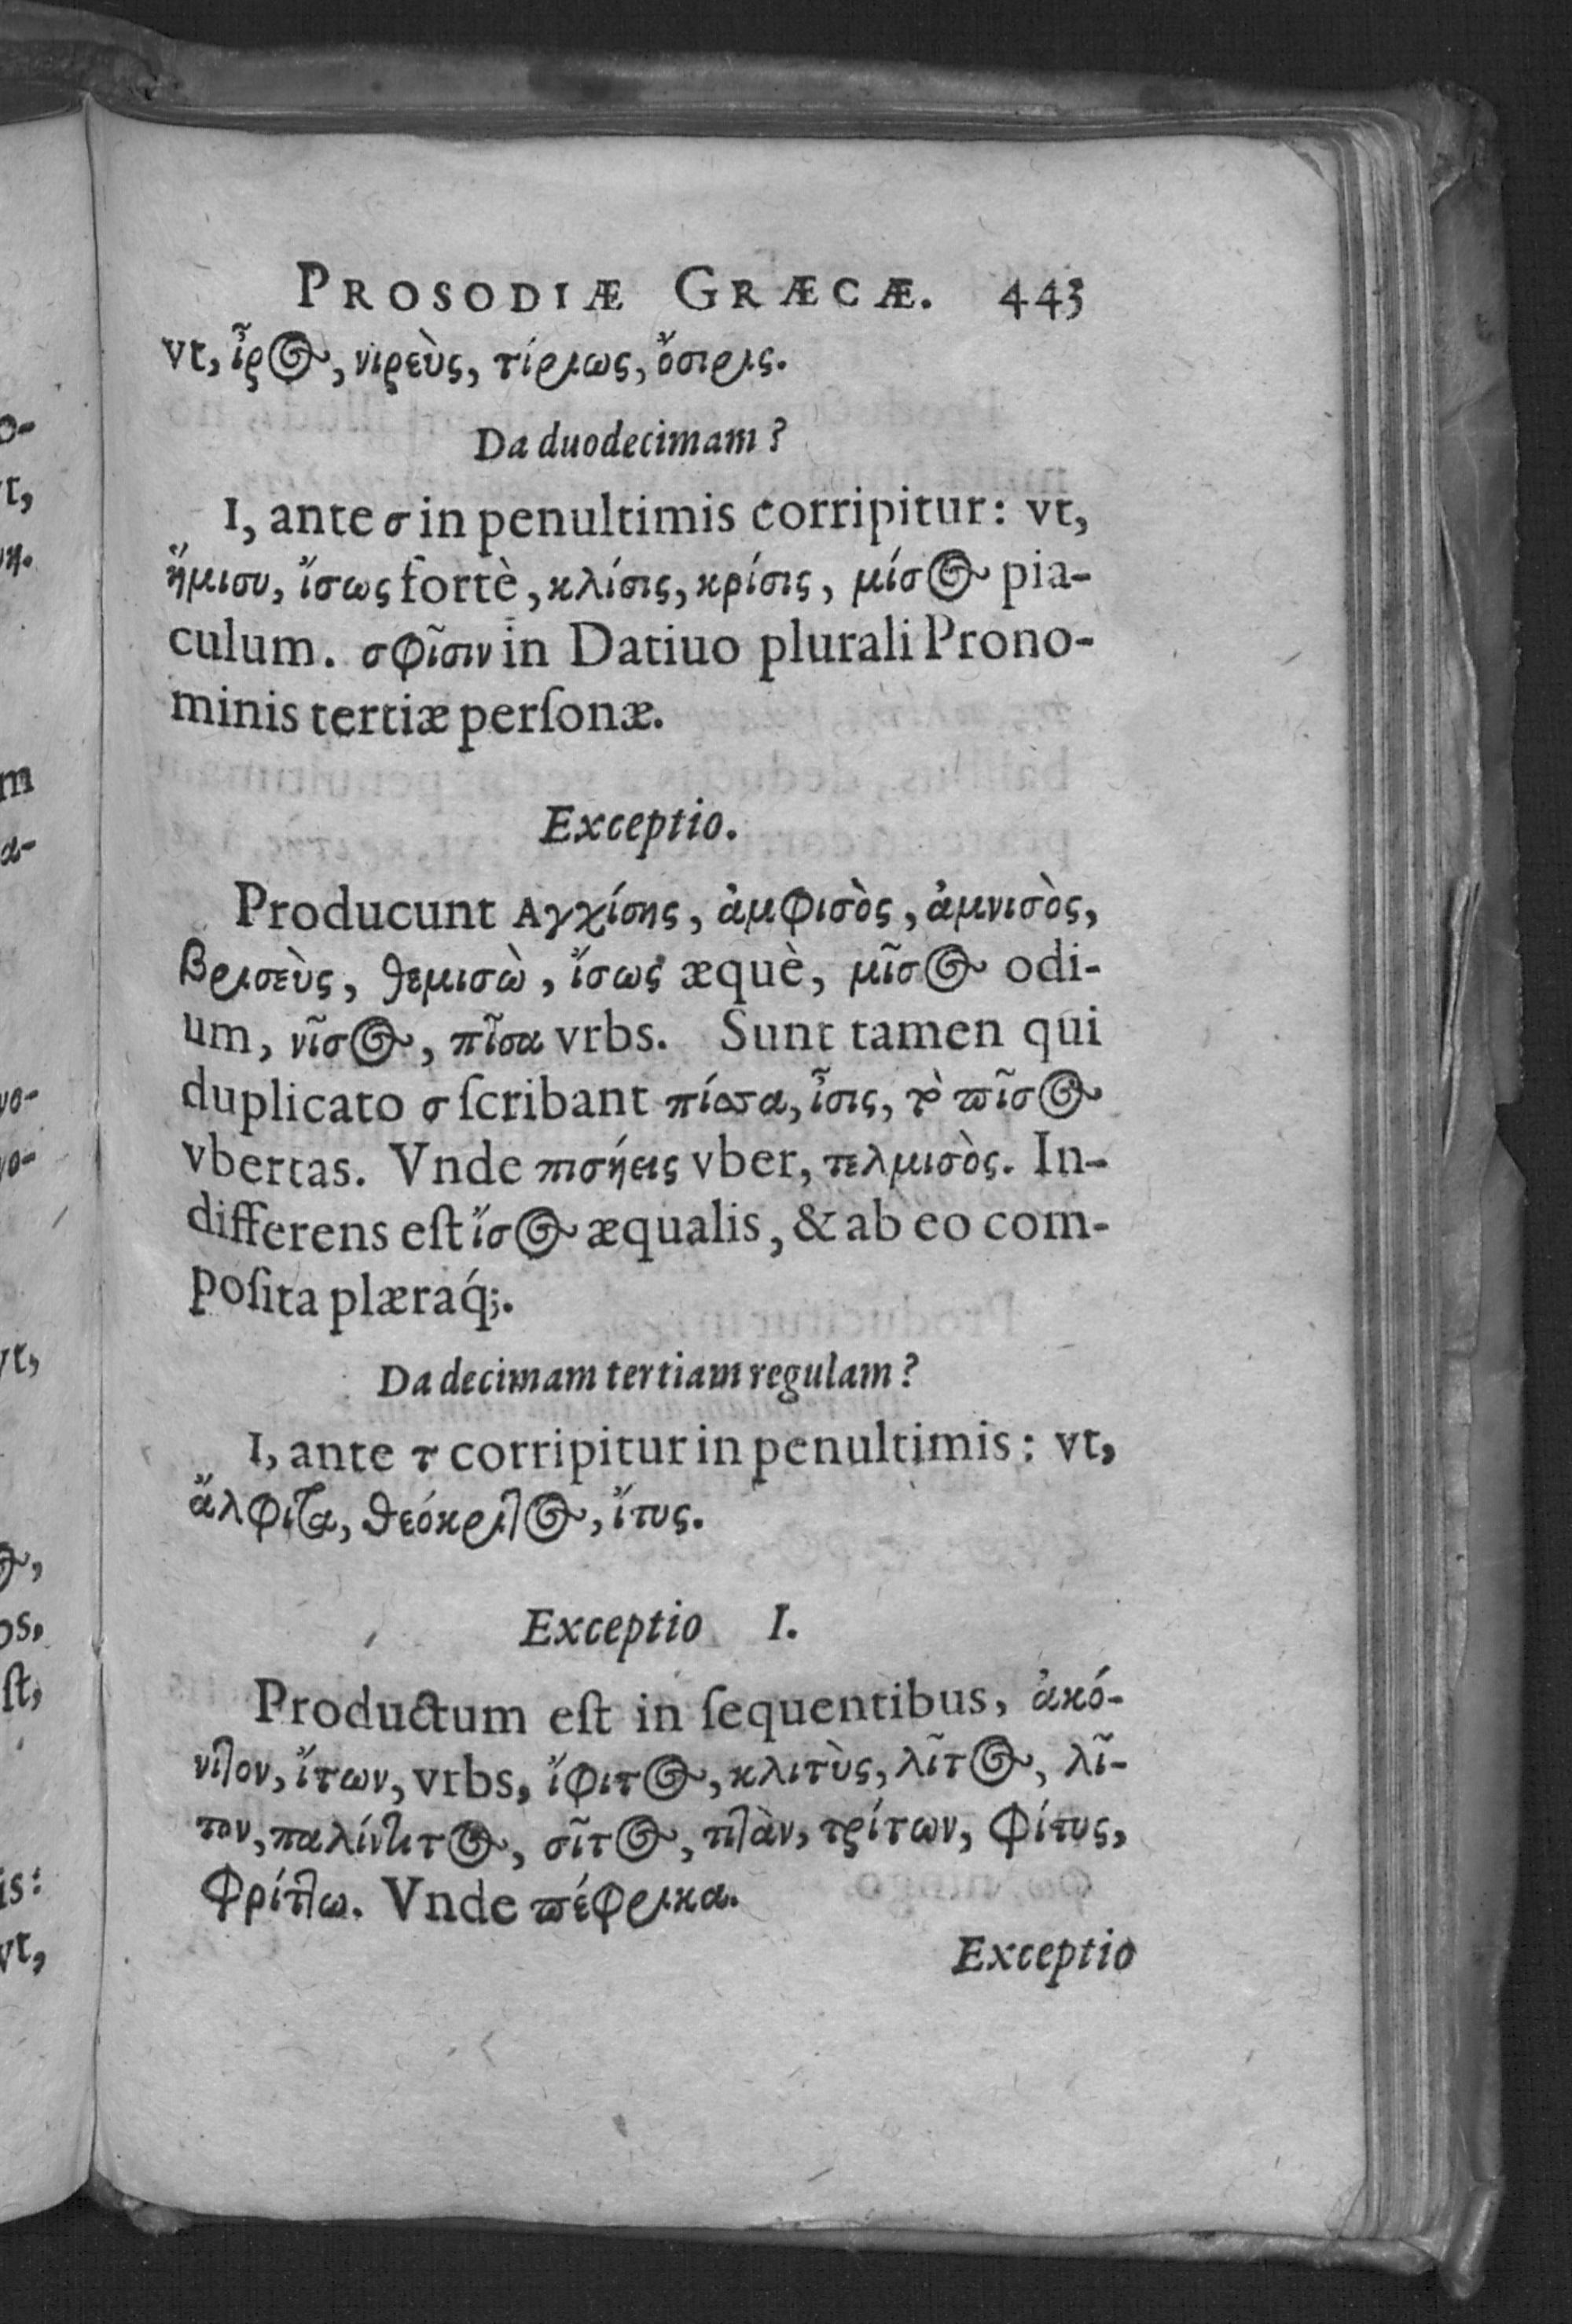 PROSODIÆ GRÆCÆ. 443
vt, ἶρος, νιρεὺς, τίριως, ὄσιρις.
Da duodecimam?
I, ante σ in penultimis corripitur: vt,
ἥμισυ, ἴσως fortè, κλίσις, κρίσις, μίσος pia-
culum. σφῖσιν in Datiuo plurali Prono-
minis tertiæ perſonæ.
Exceptio.
Producunt Αγχίσης, ἀμφισὸς, ἀμνισὸς,
Βρισεὺς, θεμισὼ, ἴσως æquè, μῖσος odi-
um, νῖσος, πῖσα vrbs. Sunt tamen qui
duplicato σ ſcribant πίσσα, ἶσις, τὸ πῖσος
vbertas. Vnde πισήεις vber, τελμισὸς. In-
differens eſt ἴσος æqualis, & ab eo com-
poſita plæraq́;.
Da decimam tertiam regulam?
I, ante τ corripitur in penultimis: vt,
ἄλφιτα, θεόκριτος, ἴτυς.
Exceptio I.
Productum eſt in ſequentibus, ἀκό-
νιτον, ἴτων, vrbs, ἴφιτος, κλιτὺς, λῖτος, λῖ-
τον, παλίντιτος, σῖτος, τιτὰν, τρίτων, φίτυς,
φρίττω. Vnde πέφρικα.
Exceptio